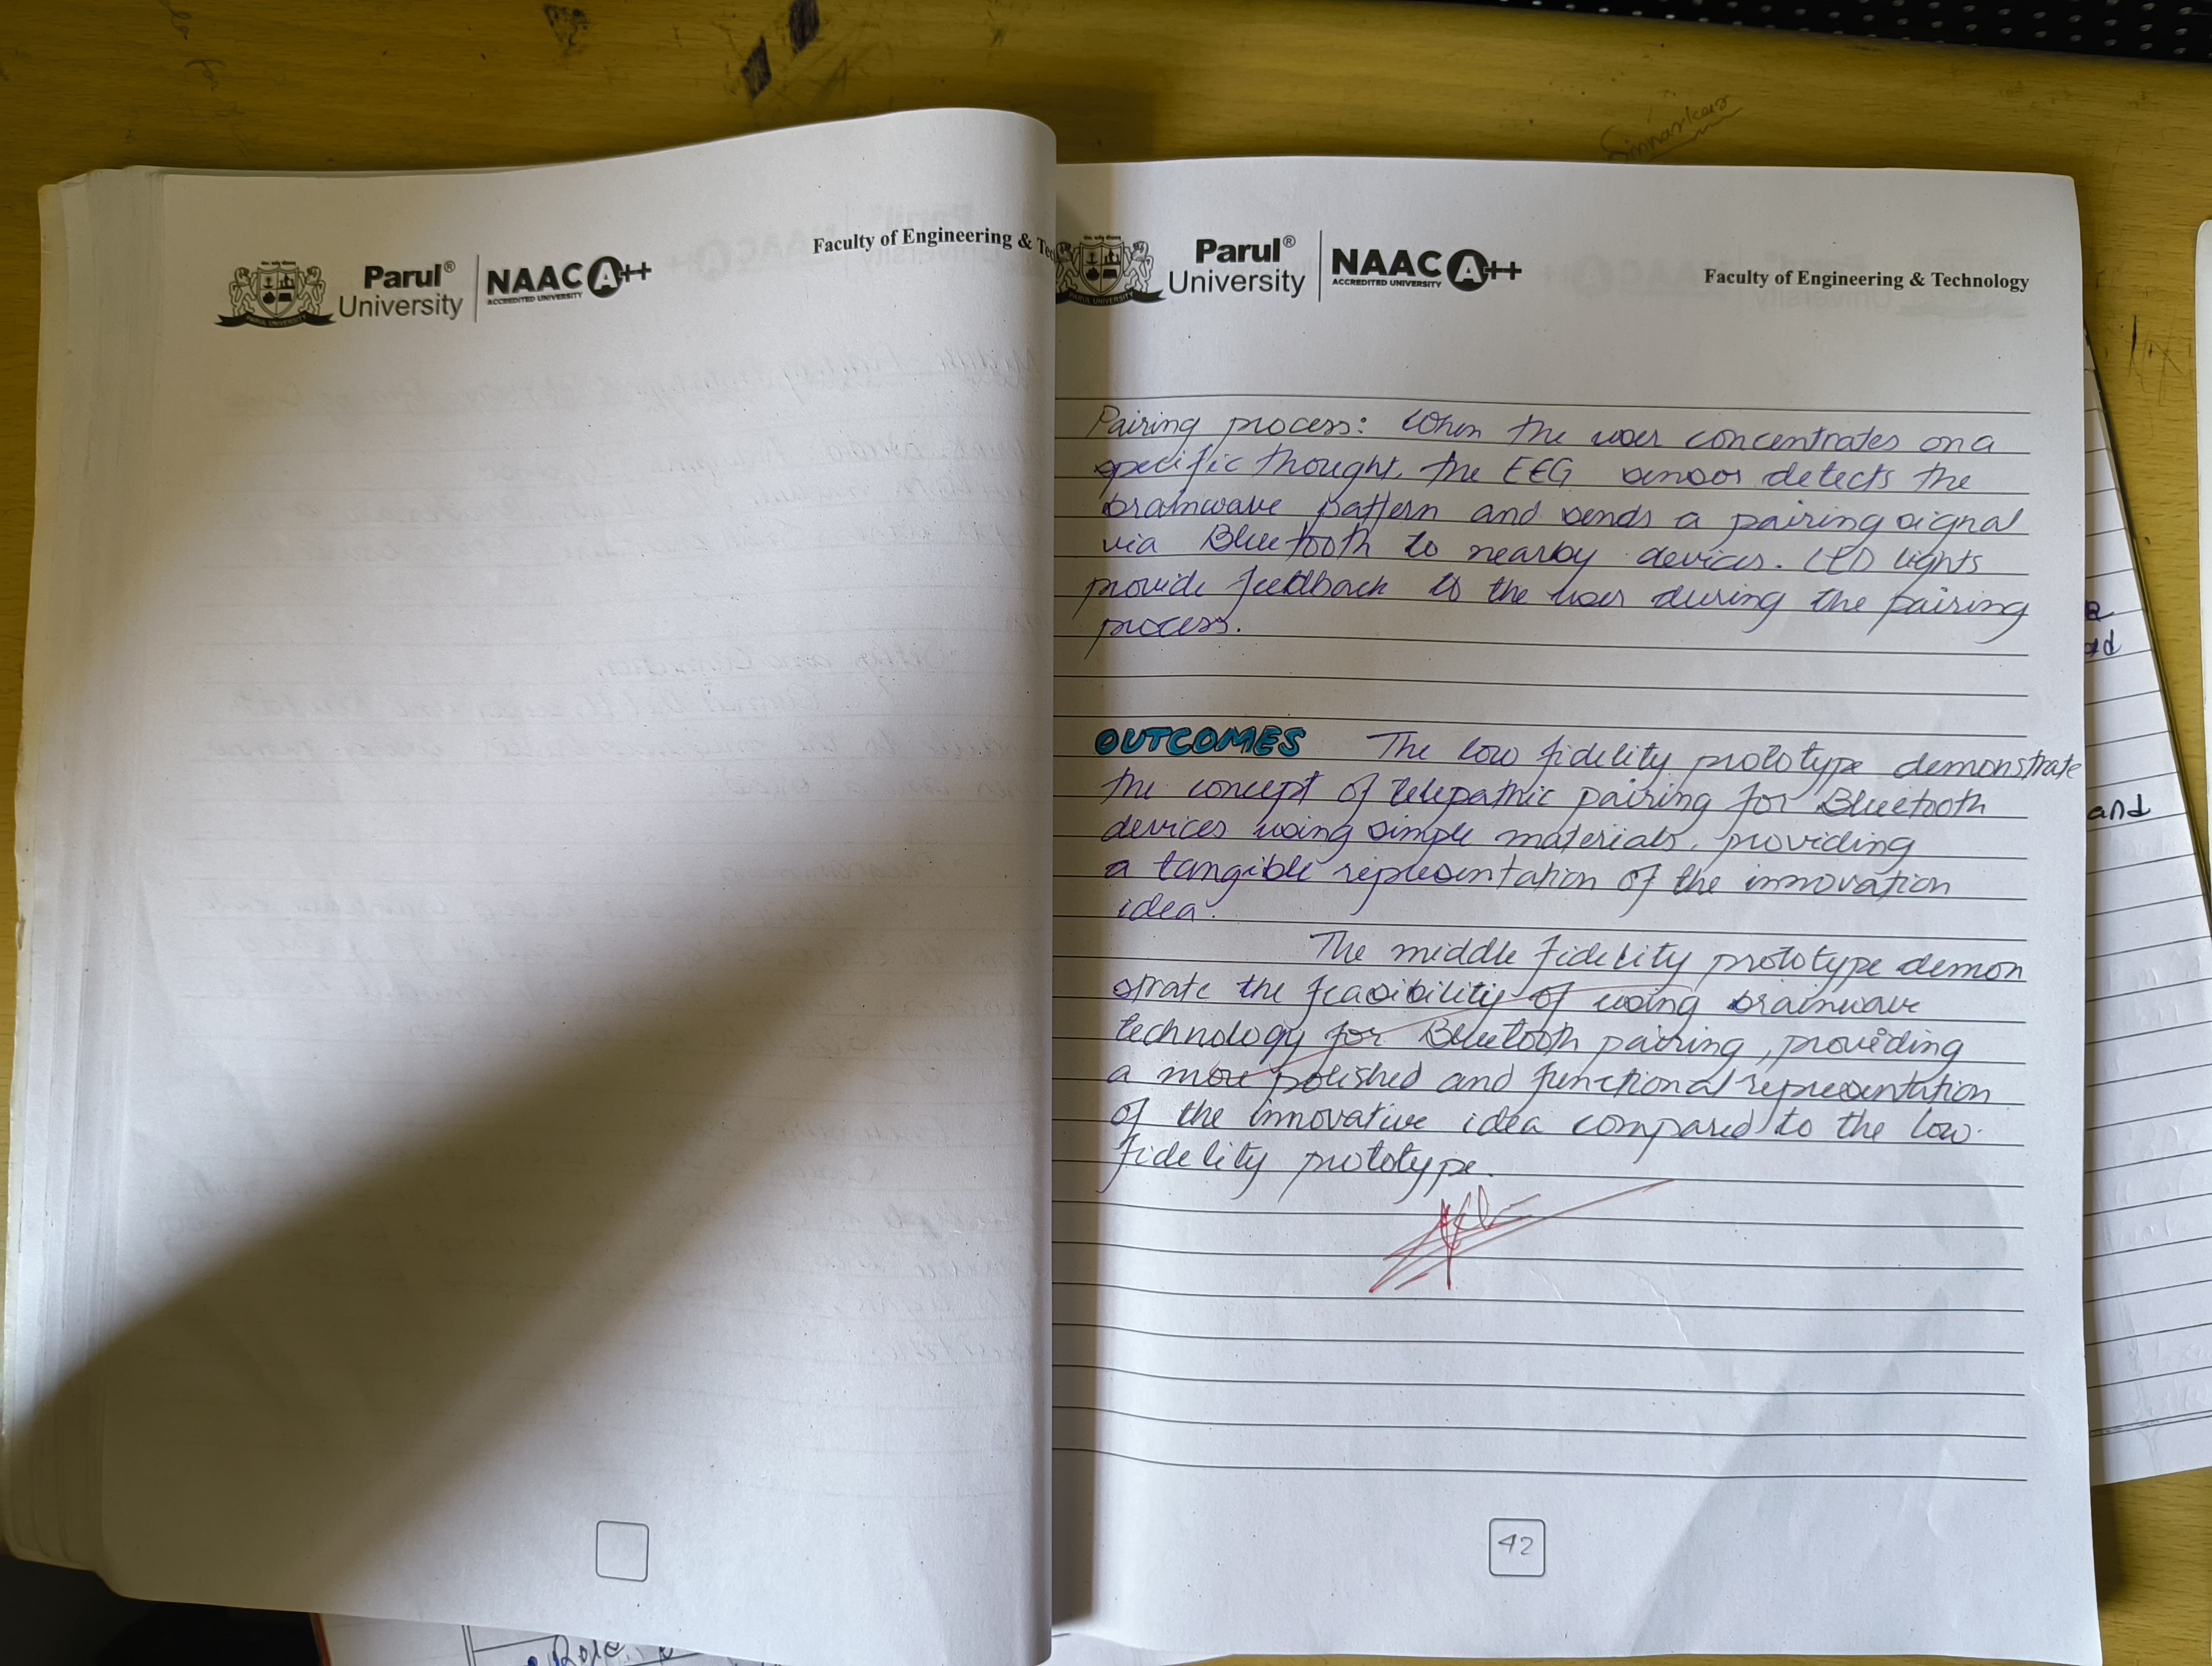 Parul®
University
NAAC A++
ACCREDITED UNIVERSITY
Faculty of Engineering & Tec
Parul®
University
NAAC A++
ACCREDITED UNIVERSITY
Faculty of Engineering & Technology
Pairing process: When the user concentrates on a
specific thought, the EEG sensor detects the
brainwave pattern and sends a pairing signal
via Bluetooth to nearby devices. LED lights
provide feedback to the user during the pairing
process.
OUTCOMES The low fidelity prototype demonstrate
the concept of telepathic pairing for Bluetooth
devices using simple materials, providing
a tangible representation of the innovation
idea.
The middle fidelity prototype demon
strate the feasibility of using brainwave
technology for Bluetooth pairing, providing
a more polished and functional representation
of the innovative idea compared to the low
fidelity prototype.
42
and
Role